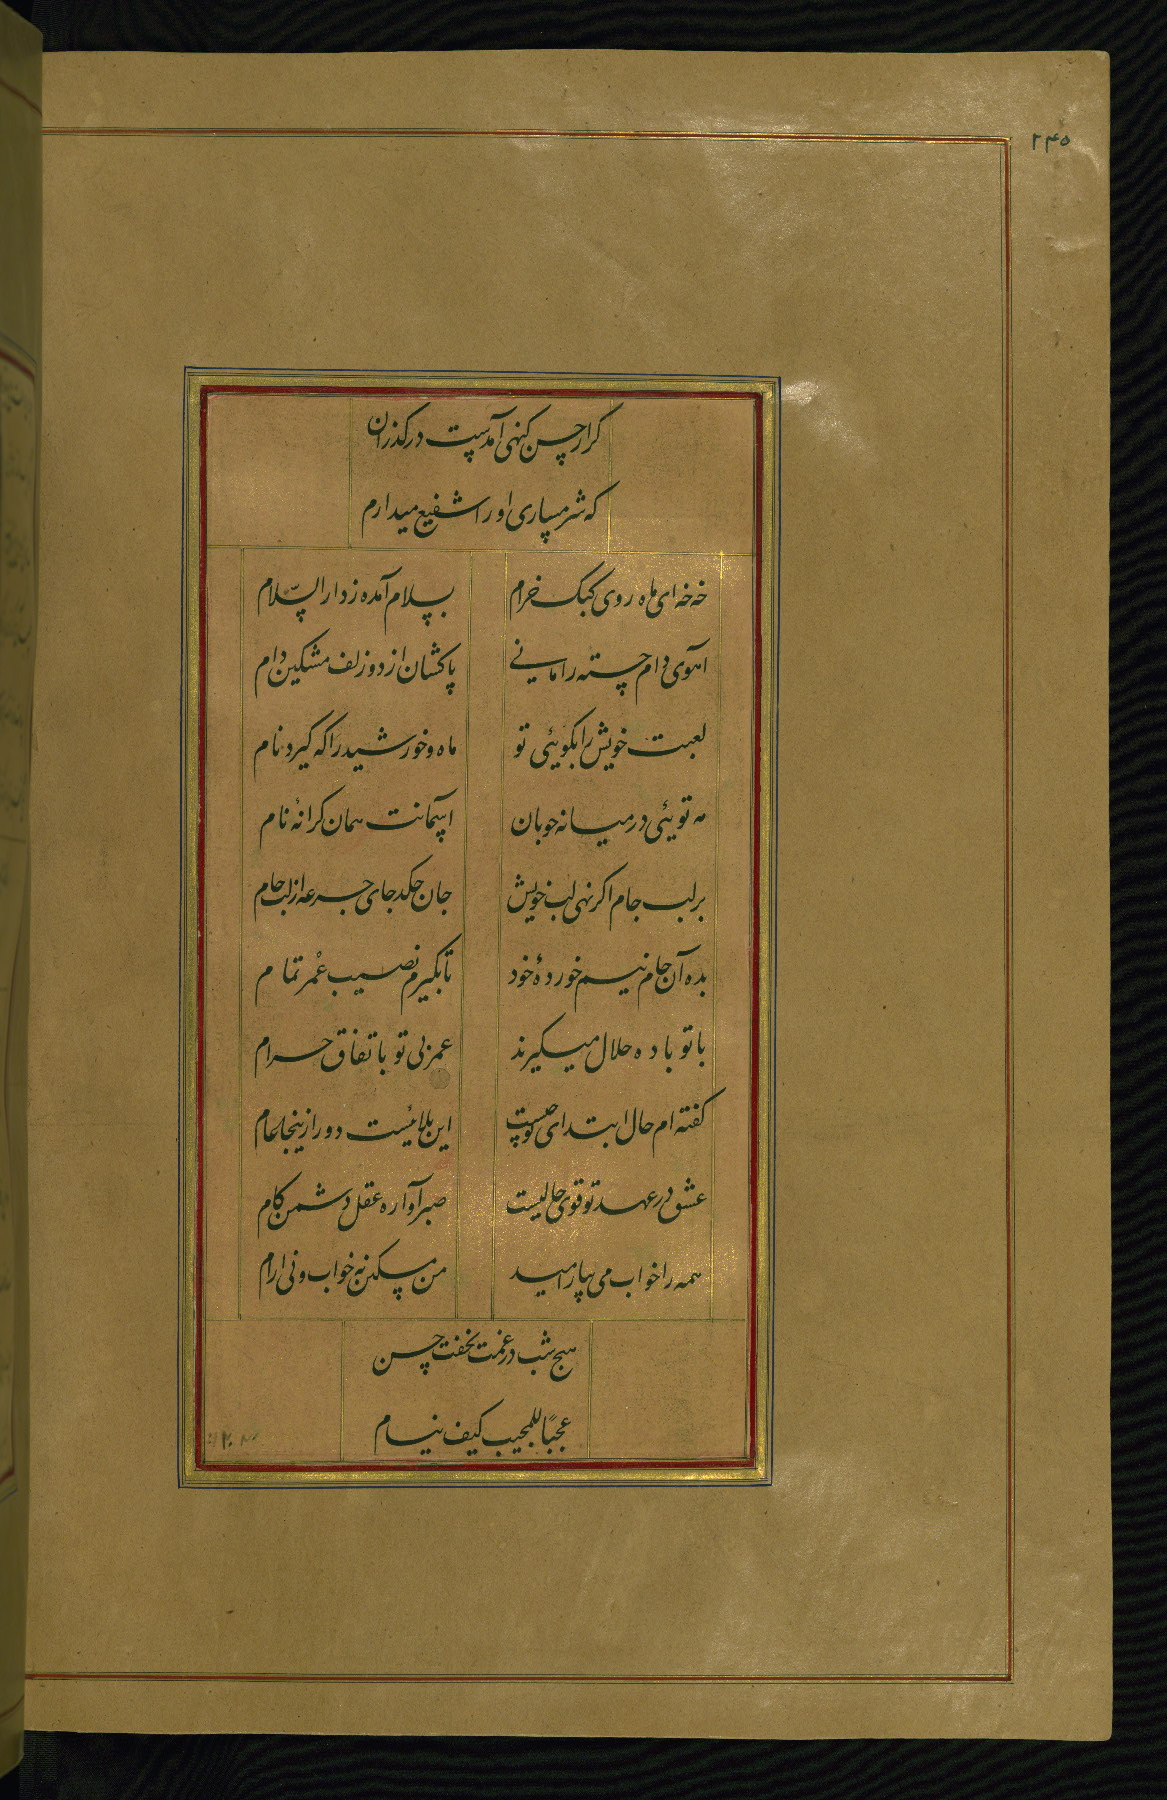 ۲۴۵
کر از حسن کنهی آمدست درکذران
که شرمساری او را شفیع میدارم
خه خه ای ماه روی کبک خرام بسلام آمده ز دار السّلام
آهوی دام جسته را مانی پاکشان از دو زلف مشکین دام
لعبت خویش را بکویئی تو ماه و خورشید را که کیرد نام
مه تویئی در میانه خوبان آسمانت همان کرانهٔ نام
بر لب جام اکر نهی لب خویش جان چکد جای جرعه از لب جام
بده آن جام نیم خوردهٔ خود تا بکیرم نصیب عُمر تمام
با تو باده حلال میکیرند عمر بی تو باتفاق حرام
کفته ام حال ابتدای این بلائیست دور از ینجا عام
عشق در عهد تو قوی حالیست صبر آواره عقل دشمن کام
همه را خواب می بیارامید من مسکن نه خواب و نی ارام
هیچ شب در غمت نخفت حسن
عجبًا للمحب کیف ینام